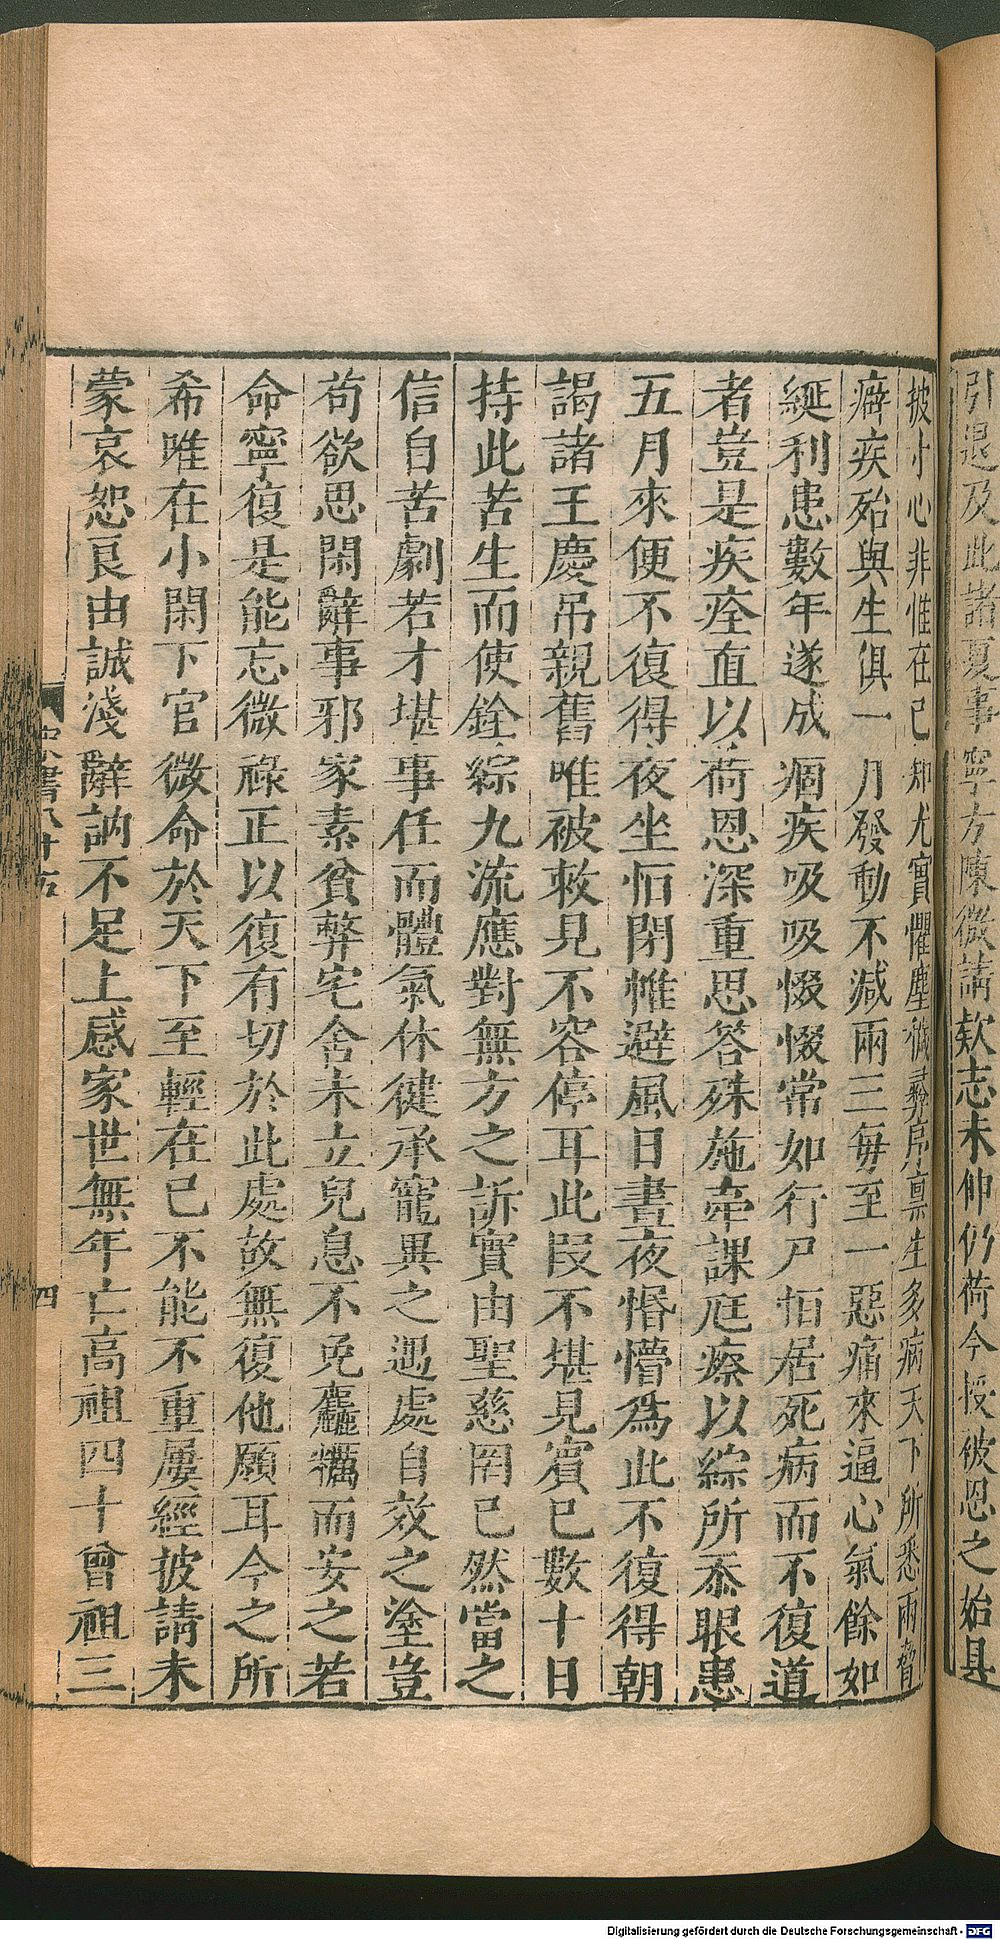 引退及此諸夏事寧方陳微請款志未伸仍荷今授被恩之始具
披寸心非惟在己知尤實懼塵穢彝序稟生多病天下所悉兩脅
癖疾殆與生俱一月發動不減兩三每至一惡痛來逼心氣餘如
綖利患數年遂成痼疾吸吸惙惙常如行尸恒居死病而不復道
者豈是疾痊直以荷恩深重思答殊施牽課尫瘵以綜所忝眼患
五月來便不復得夜坐恒閉帷避風日晝夜惛懵爲此不復得朝
謁諸王慶吊親舊唯被敕見不容停耳此段不堪見賓已數十日
持此苦生而使銓綜九流應對無方之訴實由聖慈罔已然當之
信自苦劇若才堪事任而體氣休健承寵異之遇處自效之塗豈
苟欲思閑辭事邪家素貧弊宅舍未立兒息不免麤糲而安之若
命寧復是能忘微祿正以復有切於此處故無復他願耳今之所
希唯在小閑下官微命於天下至輕在己不能不重屢經披請未
蒙哀恕良由誠淺辭訥不足上感家世無年亡高祖四十曾祖三
宋書八十五
四
Digitalisierung gefördert durch die Deutsche Forschungsgemeinschaft - DFG